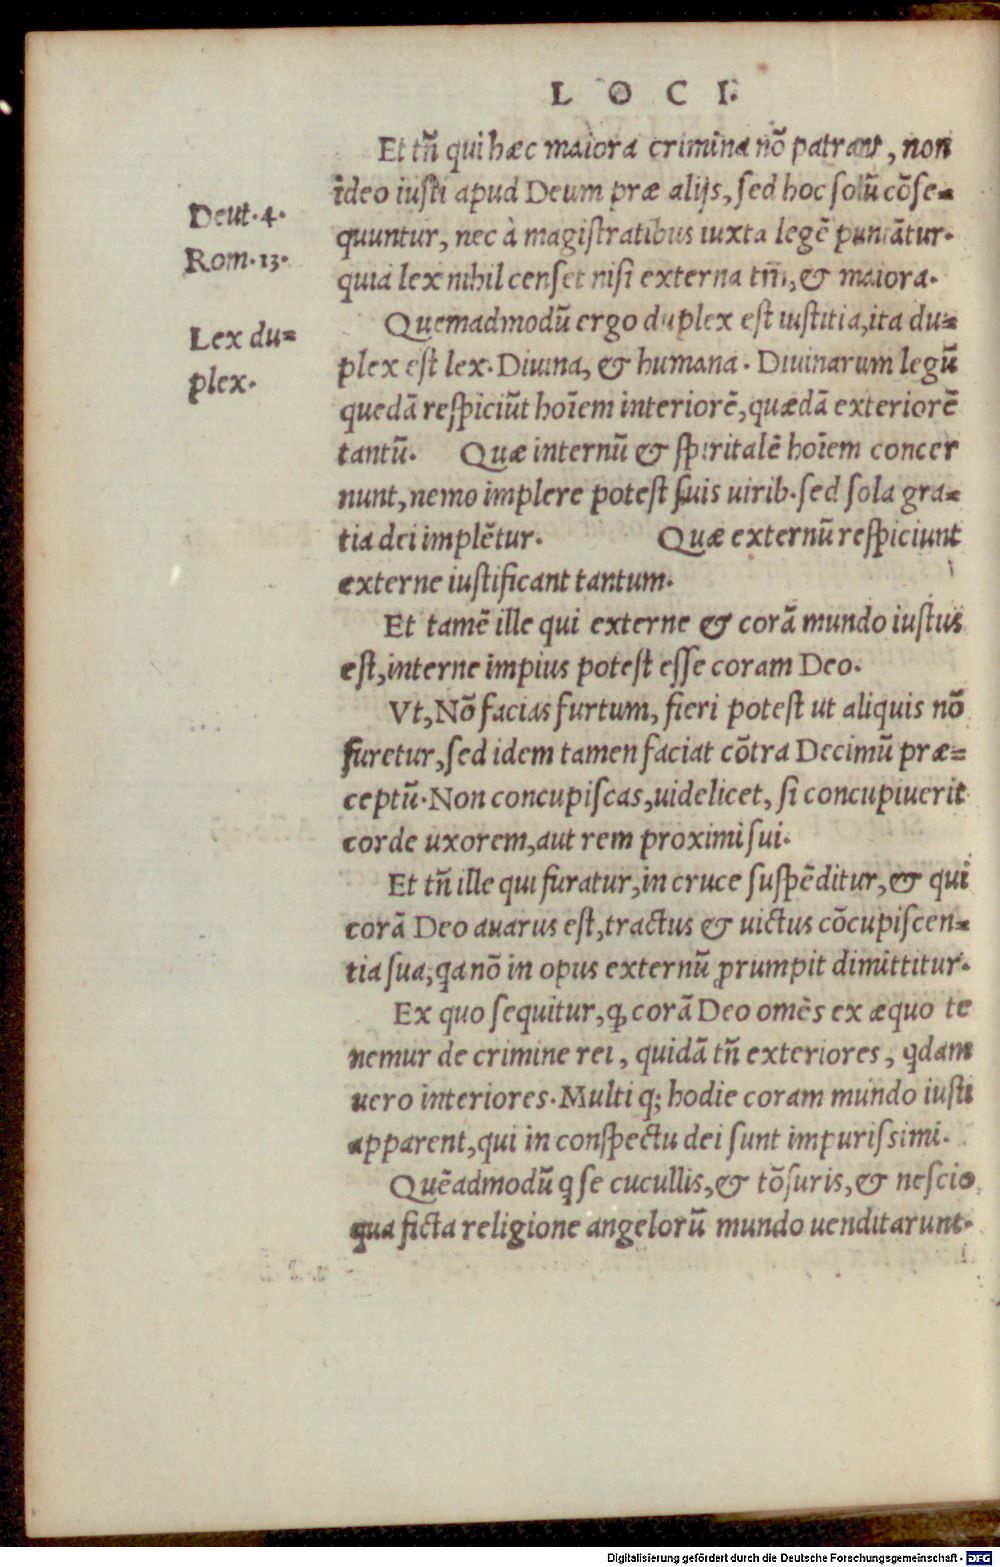 LOCI.
Et tñ qui hæc maiora crimina nõ patrant, non
ideo iusti apud Deum præ alijs, sed hoc solũ cõse=
Deut.4.
quuntur, nec à magistratibus iuxta legẽ puniãtur.
Rom.13.
quia lex nihil censet nisi externa tñ, & maiora.
Quemadmodũ ergo duplex est iustitia, ita du=
Lex du=
plex est lex. Diuina, & humana. Diuinarum legũ
plex.
quedã respiciũt hoĩem interiorẽ, quædã exteriorẽ
tantũ. Quæ internũ & spiritalẽ hoĩem concer
nunt, nemo implere potest suis uirib. sed sola gra=
tia dei implẽtur. Quæ externũ respiciunt
externe iustificant tantum.
Et tamẽ ille qui externe & corã mundo iustus
est, interne impius potest esse coram Deo.
Vt, Nõ facias furtum, fieri potest ut aliquis nõ
furetur, sed idem tamen faciat cõtra Decimũ præ=
ceptũ. Non concupiscas, uidelicet, si concupiuerit
corde uxorem, aut rem proximi sui.
Et tñ ille qui furatur, in cruce suspẽditur, & qui
corã Deo auarus est, tractus & uictus cõcupiscen=
tia sua, qa nõ in opus externũ ꝓrumpit dimittitur.
Ex quo sequitur, ꝙ corã Deo omẽs ex æquo te
nemur de crimine rei, quidã tñ exteriores, qdam
uero interiores. Multi q; hodie coram mundo iusti
apparent, qui in conspectu dei sunt impurissimi.
Quẽadmodũ q se cucullis, & tõsuris, & nescio
qua ficta religione angelorũ mundo uenditarunt.
Digitalisierung gefördert durch die Deutsche Forschungsgemeinschaft - DFG